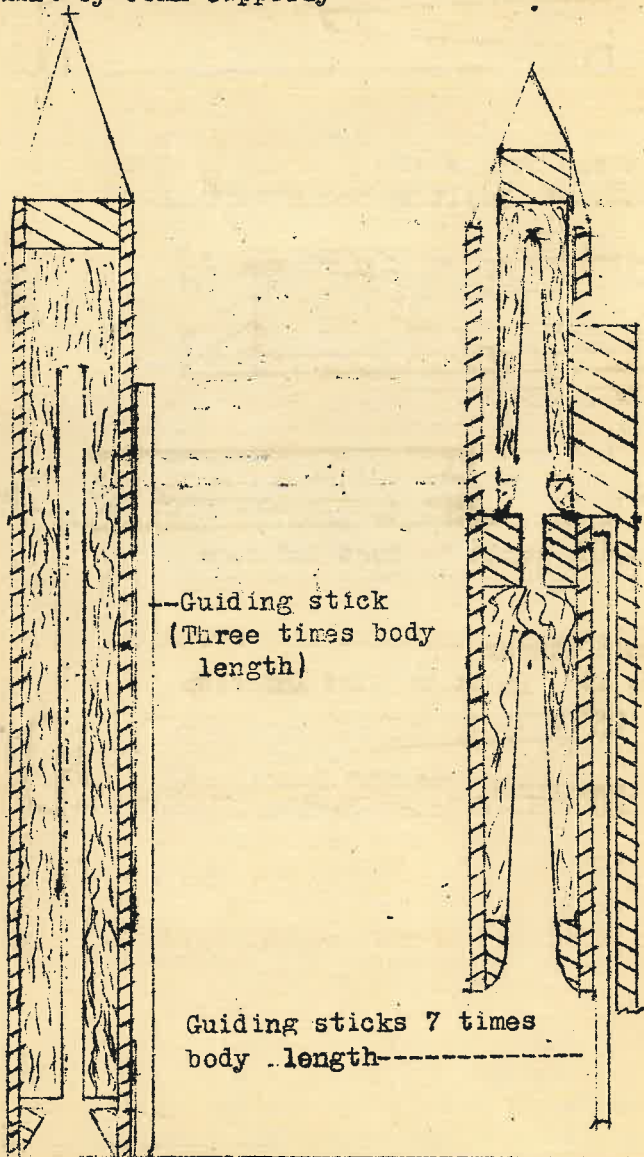 by
--Guiding stick
(Three times body
length)
Guiding sticks 7 times
body length------------